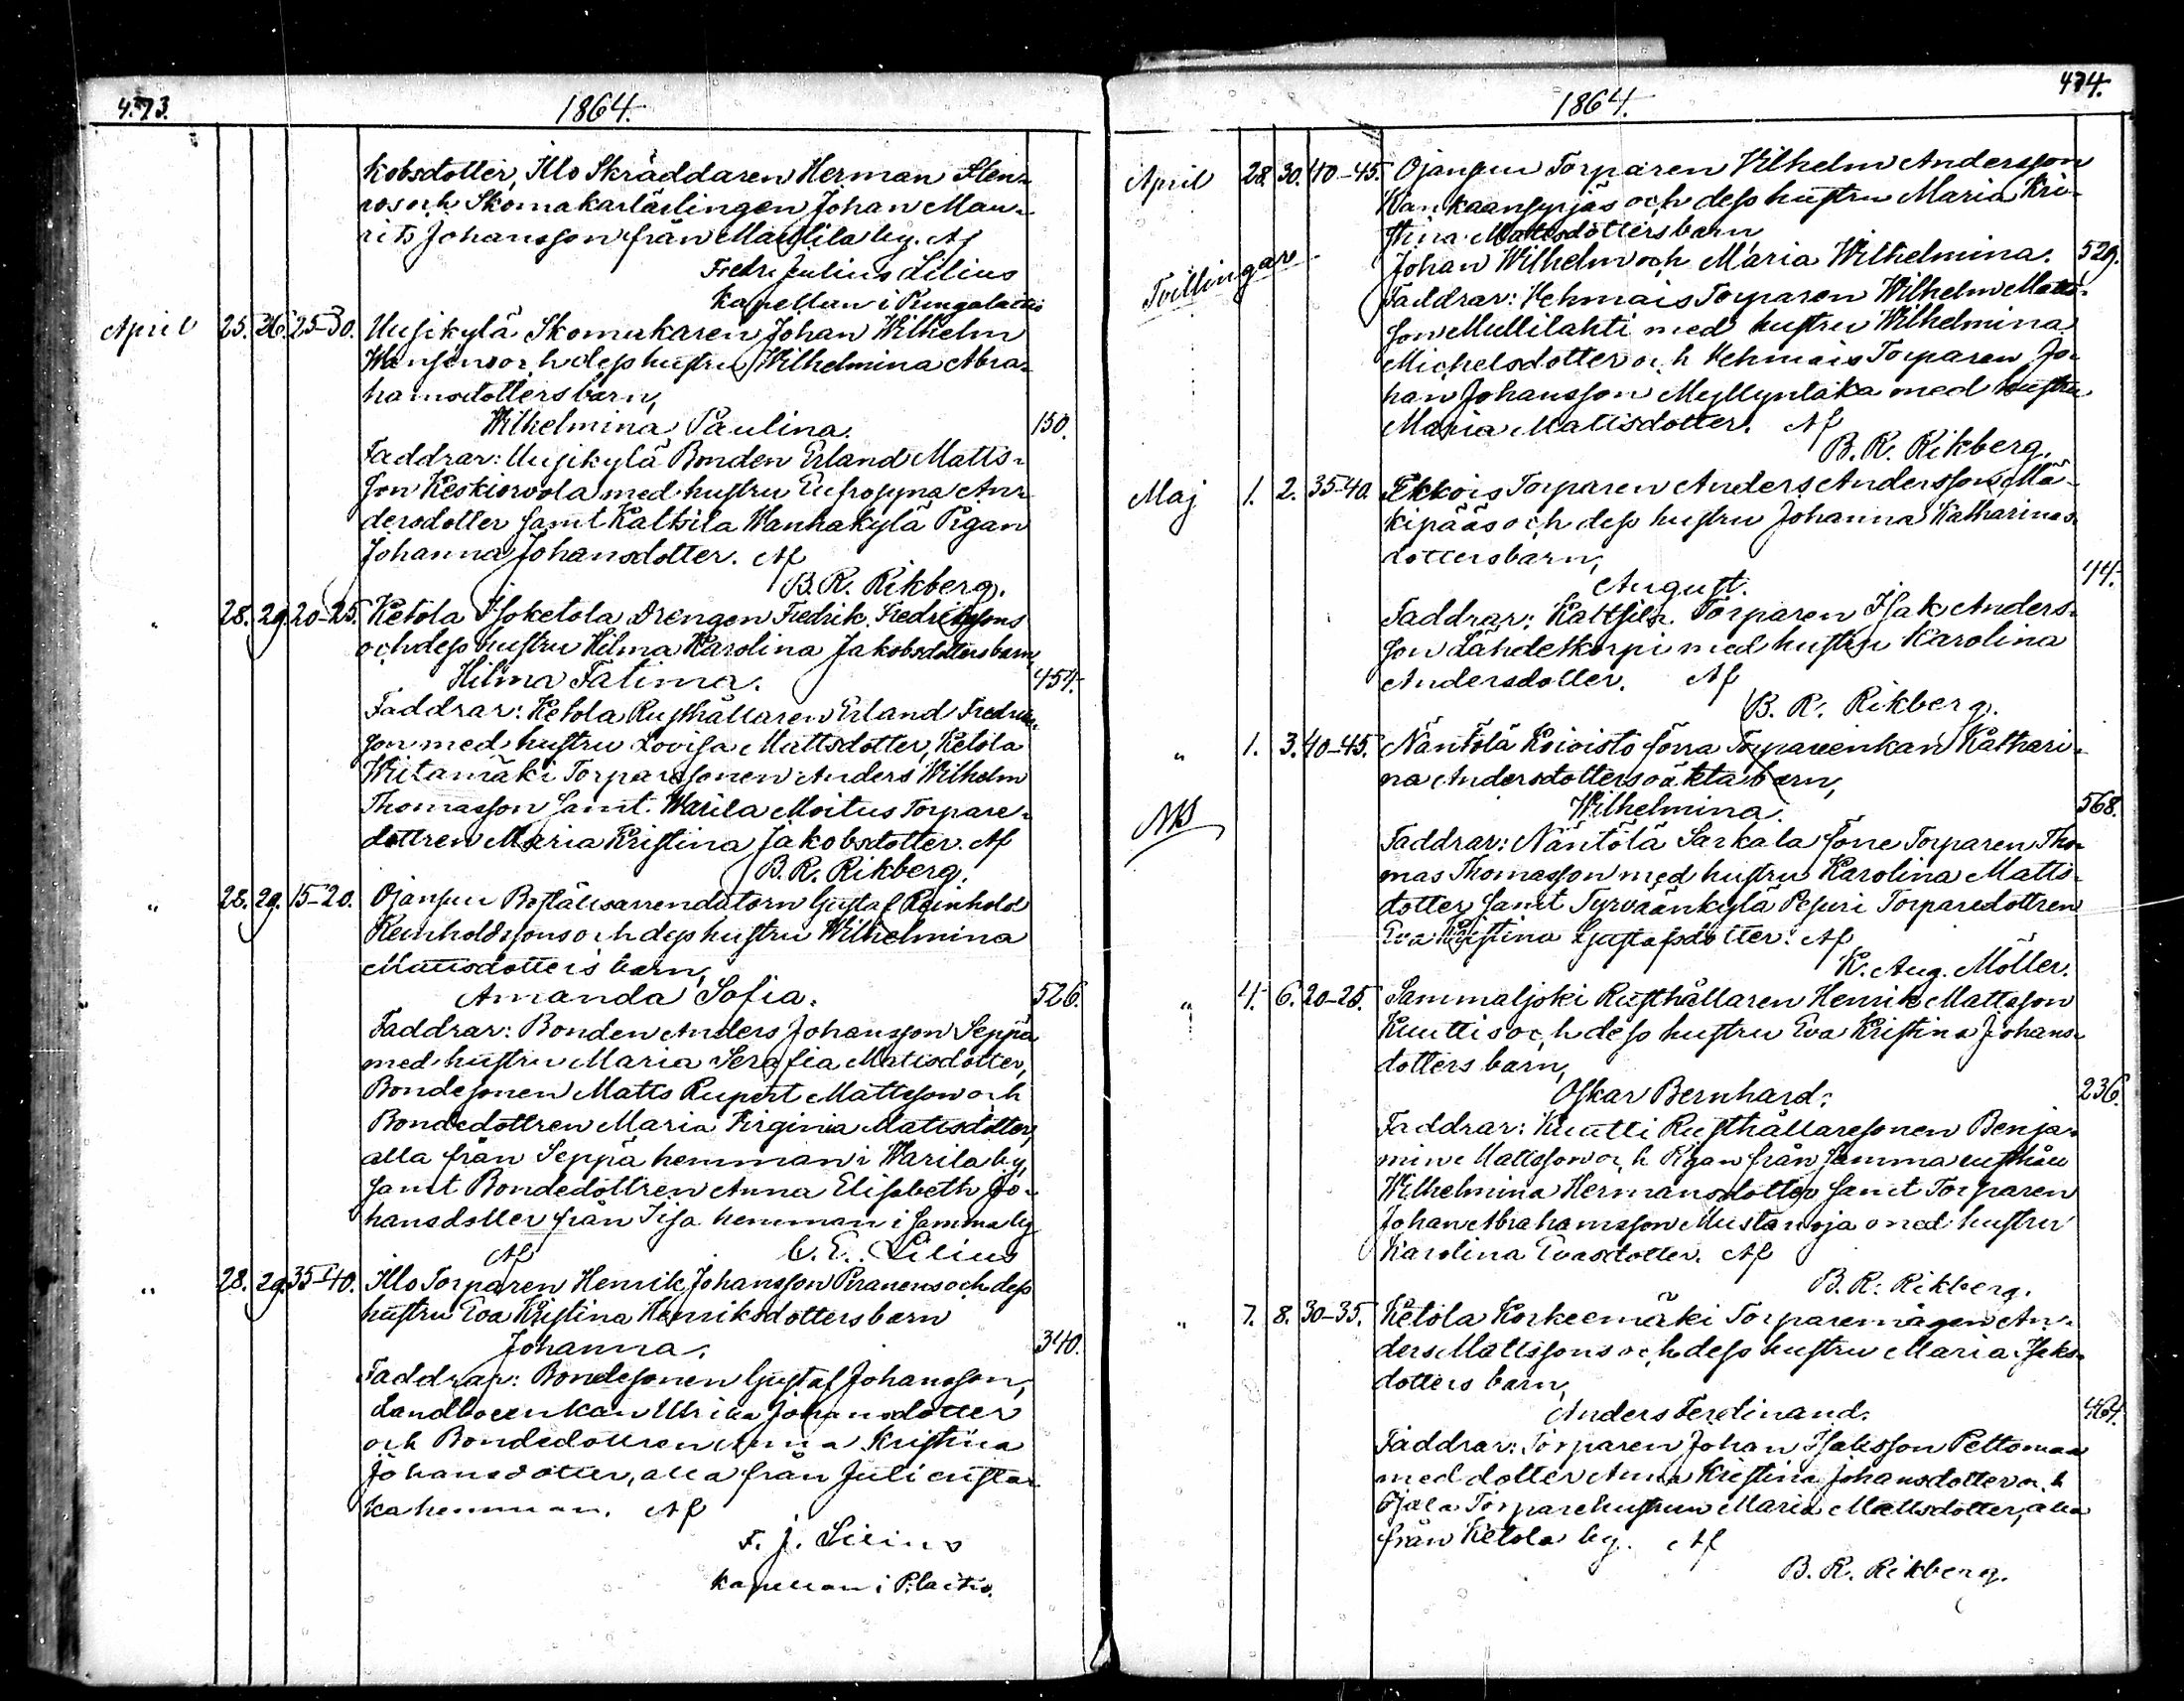 473.
1864.
kobsdotter, Illo Skräddaren Herman Sten-
ros och Skomakarlärlingen Johan Mau-
rits Johansson från Mauttila by. Af
Fredr. Julius Lilius
Kapellan i Pungalaitio
April 25. 26. 25-30. Uusikylä Skomakaren Johan Wilhelm
och dess hustru Wilhelmina Abra-
hamsdotters barn,
Wilhelmina Paulina. 150.
Faddrar: Uusikylä Bonden Erland Matts-
son Keskiorvola med hustru Eufrosyna An-
dersdotter samt Kaltsila Wanhakylä Pigan
Johanna Johansdotter. Af
B. R. Rikberg.
" 28. 29. 20-25. Ketola Isoketola Drengen Fredrik Fredrikssons
och dess hustru Hilma Karolina Jakobsdotters barn
Hilma Fatima. 454.
Faddrar: Ketola Rusthållaren Erland Fredriks-
son med hustru Lovisa Mattsdotter, Ketola
Wiitamäki Torparesonen Anders Wilhelm
Thomasson samt Warila Moitus Torpare-
dottren Maria Kristina Jakobsdotter. Af
B. R. Rikberg.
" 28. 29. 15-20. Ojansuu Boställsarrendatorn Gustaf Reinhold
Reinholdssons och dess hustru Wilhelmina
Mattsdotters barn,
Amanda Sofia. 526.
Faddrar: Bonden Anders Johansson Seppä
med hustru Maria Serafia Mattsdotter,
Bondesonen Matts Rupert Mattsson och
Bondedottren Maria Virginia Mattsdotter,
alla från Seppä hemman i Warila by,
samt Bondedottren Anna Elisabeth Jo-
hansdotter från Iisa hemman i samma by
Af C. E. Lilius
" 28. 29. 35-40. Illo Torparen Henrik Johansson Piranens och dess
hustru Eva Kristina Henriksdotters barn
Johanna. 340.
Faddrar: Bondesonen Gustaf Johansson,
Landboenkan Ulrika Johansdotter
och Bondedottren Anna Kristina
Johansdotter, alla från Juli
hemman. Af
F. J. Lilius
kapellan i P:laitio.
474.
1864.
April 28. 30. 40-45. Ojansuu Torparen Wilhelm Andersson
Kankaansyrjäs och dess hustru Maria Kri-
stina Mattsdotters barn,
Tvillingar Johan Wilhelm och Maria Wilhelmina. 529.
Faddrar: Vehmais Torparen Wilhelm Matts-
son Mullilahti med hustru Wilhelmina
Michelsdotter och Vehmais Torparen Jo-
han Johansson Myllyntaka med hustru
Maria Mattsdotter. Af
B. R. Rikberg.
Maj 1. 2. 35-40. Ekkois Torparen Anders Anderssons Mä-
kipääs och dess hustru Johanna Katharinas-
dotters barn,
August. 44.
Faddrar: Kaltsila Torparen Isak Anders-
son Lähdekorpi med hustru Karolina
Andersdotter. Af
B. R. Rikberg.
" 1. 3. 40-45. Näntölä Koivisto förra Torpareenkan Kathari-
na Andersdotters oäkta barn,
NB Wilhelmina. 568.
Faddrar: Näntölä Sarkala förre Torparen Tho-
mas Thomasson med hustru Karolina Matts-
dotter samt Tyrväänkylä Pesuri Torparedottren
Eva Kristina Gustafsdotter. Af
K. Aug. Möller.
" 4. 6. 20-25. Sammaljoki Rusthållaren Henrik Mattsson
Kuuttis och dess hustru Eva Kristina Johans-
dotters barn,
Oskar Bernhard. 236.
Faddrar: Kuutti Rusthållaresonen Benja-
min Mattsson och Pigan från samma rusthåll
Wilhelmina Hermansdotter samt Torparen
Johan Abrahamsson Mustanoja med hustru
Karolina Evasdotter. Af
B. R. Rikberg.
" 7. 8. 30-35. Ketola Korkeemäki Torparemågen An-
ders Mattssons och dess hustru Maria Isaks-
dotters barn,
Anders Ferdinand. 464.
Faddrar: Torparen Johan Isaksson Peltomaa
med dotter Anna Kristina Johansdotter och
Ojala Torparehustrun Maria Mattsdotter, alla
från Ketola by. Af
B. R. Rikberg.